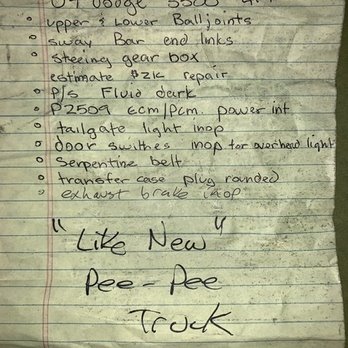 Dodge 5500
upper & Lower Balljoints
sway Bar end links
steeing gear box
estimate $21k repair
P/s Fluid dark
P2509 ecm/pcm. power int
tailgate light inop
door swithes inop for overhead light
serpentine belt
transfer case plug rounded
exhaust brake inop
"Like New"
Pee-Pee
Truck